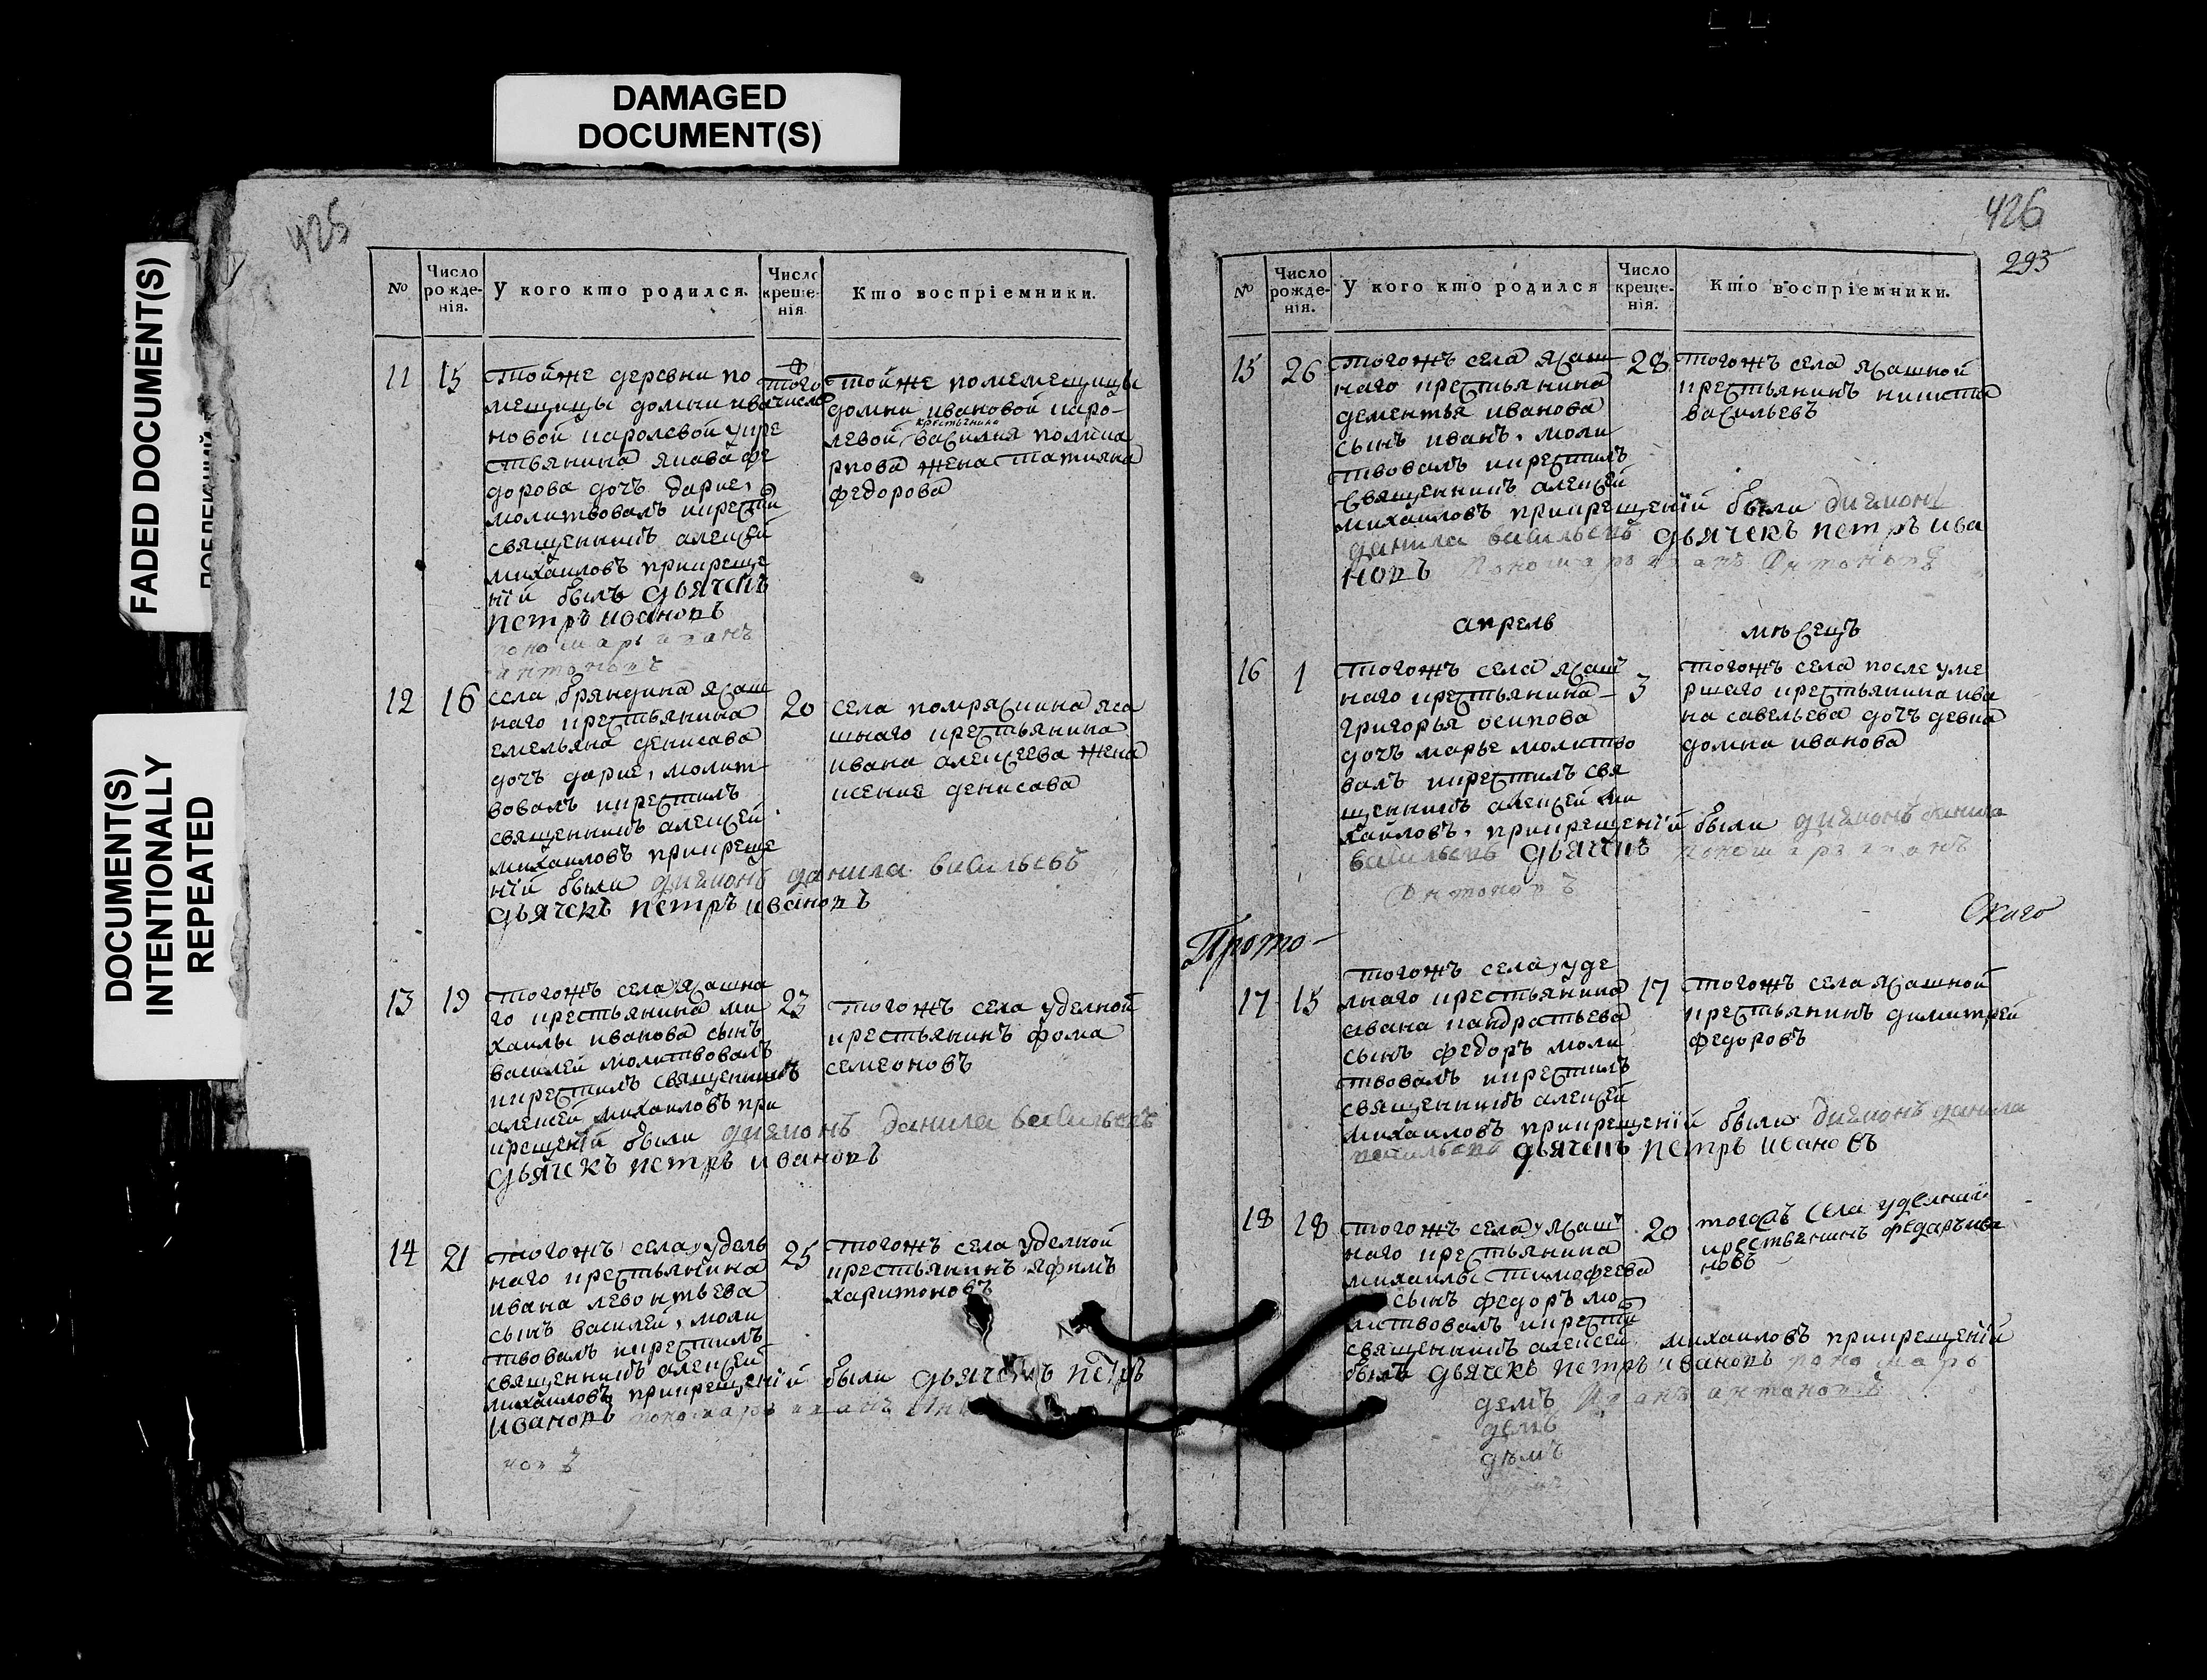 DAMAGED
DOCUMENT(S)
FADED DOCUMENT(S)
DOCUMENT(S)
INTENTIONALLY
REPEATED
425
№
Число рожденія.
У кого кто родился.
Число крещенія.
Кто воспріемники.
11
15
тойже деревни по
мещицы домни ива
новой королевой кре
стьянина якова фе
дорова дочь дарие,
молитвовалъ икрестил
священникъ алексей
михаиловъ прикреще
ніи былъ дьячекъ
петръ ивановъ
пономарь иванъ
антоновъ
того числа
тойже помемещицы
домни ивановой коро-
левой крестьянина василия поликарпова
жена татияна
федорова
12
16
села бряндина ясаш
наго крестьянина
емельяна денисава
дочъ дарие, молит
вовалъ икрестилъ
священникъ алексей
михаиловъ прикреще
ніи были диаконъ данила васильевъ
дьячекъ петръ ивановъ
20
села помряскина яса
шнаго крестьянина
ивана алексеева жена
ксение денисава
13
19
тогожъ села ясашна
го крестьянина ми
хаилы иванова сынъ
василей молитвовалъ
икрестилъ священникъ
алексей михаиловъ при
крещеніи были диаконъ данила васильевъ
дьячекъ петръ ивановъ
23
тогожъ села уделной
крестьянинъ фома
семеоновъ
14
21
тогожъ села удель
наго крестьянина
ивана левонтьева
сынъ василей, моли
твовалъ икрестилъ
священникъ алексей
михаиловъ прикрещеніи были дьячекъ петръ
ивановъ пономарь иванъ анто
новъ
25
тогожъ села уделной
крестьянинъ яфимъ
харитоновъ
426
293
№
Число рожденія.
У кого кто родился
Число крещенія.
Кто воспріемники.
15
26
тогожъ села ясаш
наго крестьянина
дементья иванова
сынъ иванъ, моли
твовалъ икрестилъ
священникъ алексей
михаиловъ прикрещеніи были диаконъ
данила васильевъ дьячекъ петръ ива
новъ пономарь иванъ антоновъ
28
тогожъ села ясашной
крестьянинъ никита
васильевъ
апрель мѣсецъ
16
1
тогожъ села ясаш
наго крестьянина
григорья осипова
дочъ марье молитво
валъ икрестилъ свя
щенникъ алексей ми
хаиловъ, прикрещеніи были диаконъ данила
васильевъ дьячекъ пономарь иванъ
антоновъ
3
тогожъ села после уме
ршаго крестьянина ива
на савельева дочъ девка
домна иванова
Прото-
17
15
тогожъ села уде
лнаго крестьянина
ивана кандратьева
сынъ федоръ моли
твовалъ икрестилъ
священникъ алексей
михаиловъ прикрещеніи были диаконъ данила
васильевъ дьячекъ петръ ивановъ
17
тогожъ села ясашной
крестьянинъ димитрей
федоровъ
18
18
тогожъ села ясаш
наго крестьянина
михаилы тимофеева
сынъ федоръ мо
литвовалъ икрести
священникъ алексей михаиловъ прикрещеніи
былъ дьячекъ петръ ивановъ пономарь
иванъ антоновъ
20
тогожъ села уделний
крестьянинъ федаръ ива
новъ